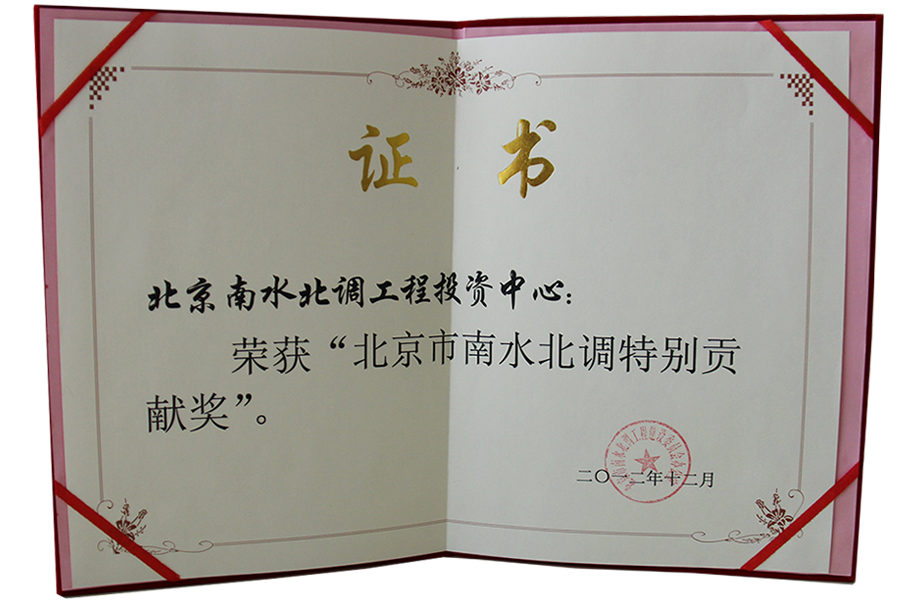 证书
北京南水北调工程投资中心：
荣获“北京市南水北调特别贡
献奖”。
二〇一二年十二月